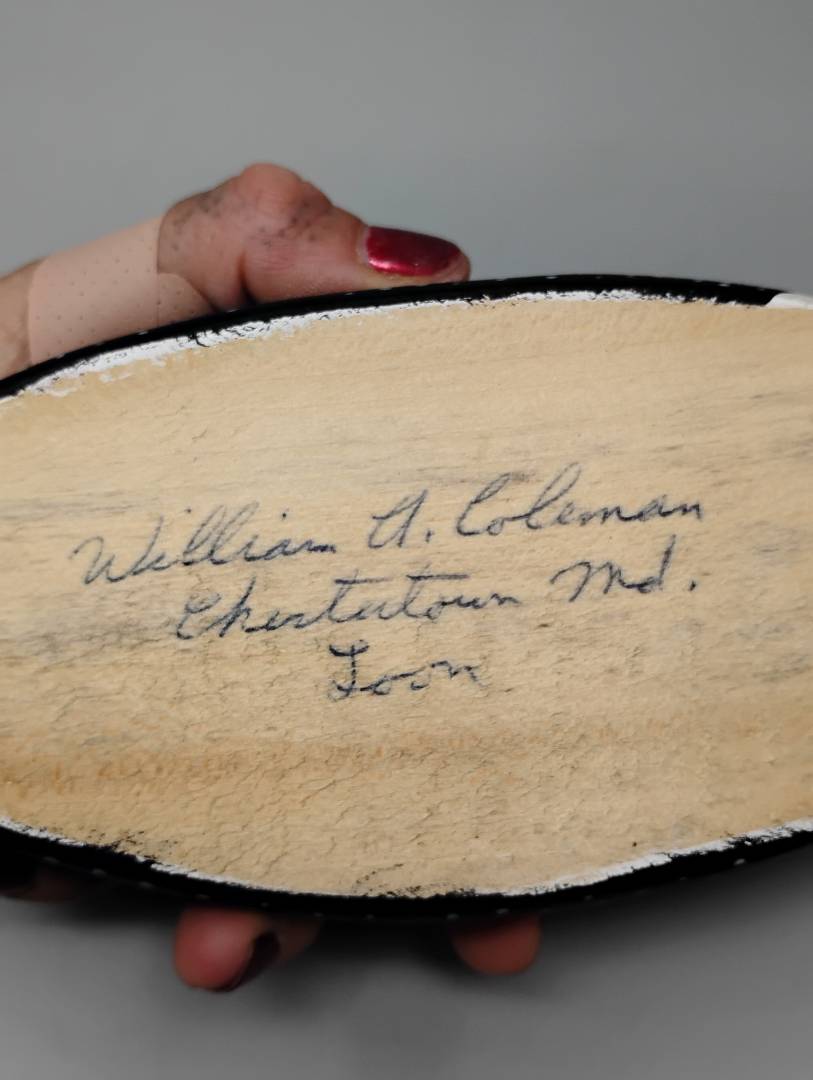 William A. Coleman
Chestertown Md.
Loon